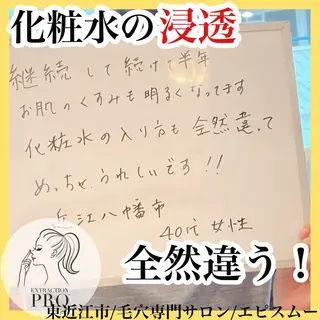 化粧水の浸透
継続して続けて半年
お肌のくすみも明るくなってます
化粧水の入り方も全然違って
めっちゃうれしいです!!
近江八幡市
40代 女性
EXTRACTION
PRO
全然違う!
東近江市/毛穴専門サロン/エピスムー